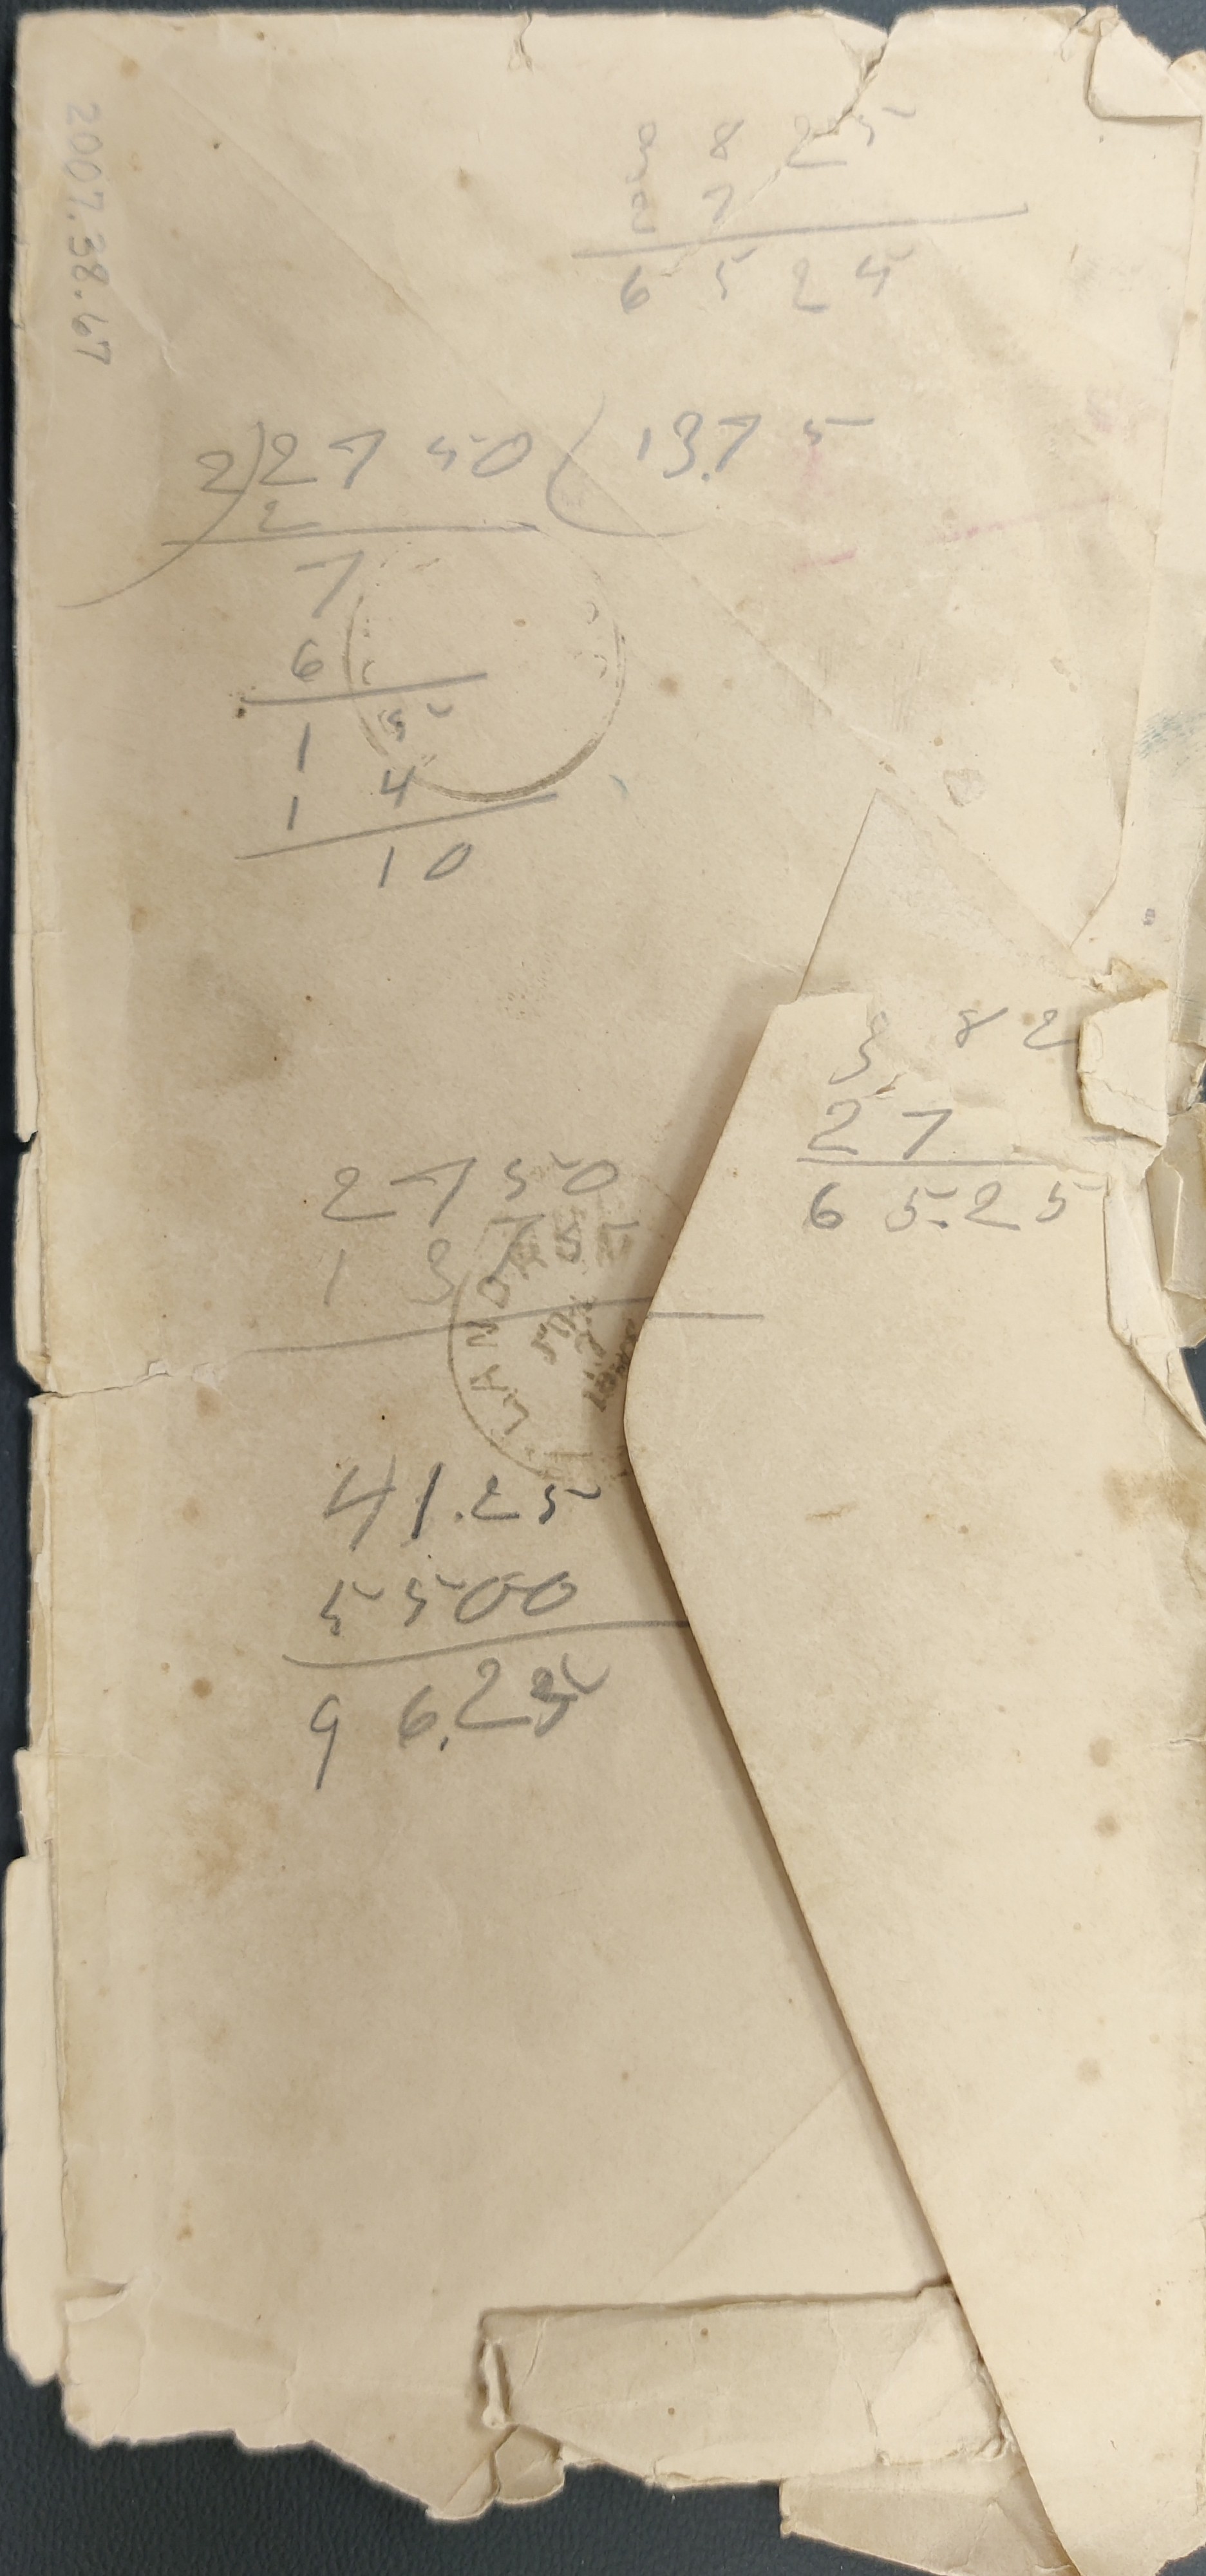 2007.38.67
3 8 25
2 7
6 5 2 5
2)27 50(13.75
2
7
6
1 5
1 4
10
3 82
27
65.25
27 50
13 75
LAND
41.25
5500
96.25